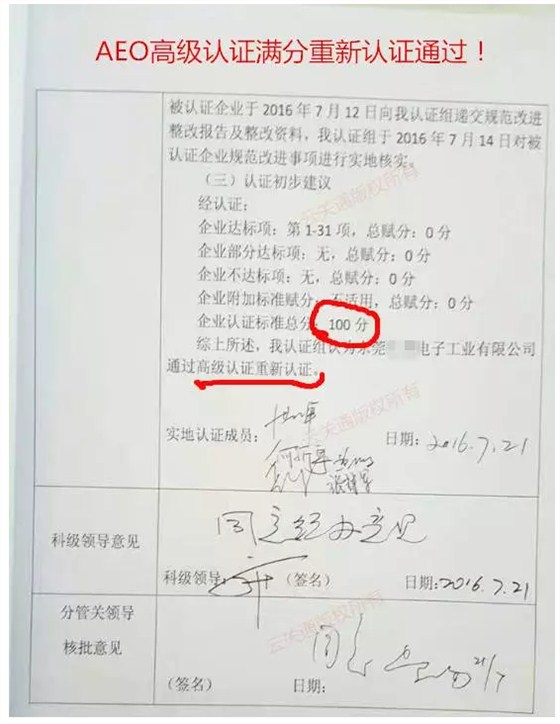 AEO高级认证满分重新认证通过！
被认证企业于 2016 年 7 月 12 日向我认证组递交规范改进
整改报告及整改资料，我认证组于 2016 年 7 月 14 日对被
认证企业规范改进事项进行实地核实。
（三）认证初步建议
经认证：
企业达标项：第 1-31 项，总赋分：0 分
企业部分达标项：无，总赋分：0 分
企业不达标项：无，总赋分：0 分
企业附加标准赋分：不适用，总赋分：0 分
企业认证标准总分：100 分
综上所述，我认证组认为东莞 电子工业有限公司
通过高级认证重新认证。
实地认证成员：
日期：2016.7.21
科级领导意见
同意经办意见
科级领导：
（签名）
日期：2016.7.21
分管关领导
核批意见
同意
21/7
（签名）
日期：
云关通版权所有
云关通版权所有
云关通版权所有